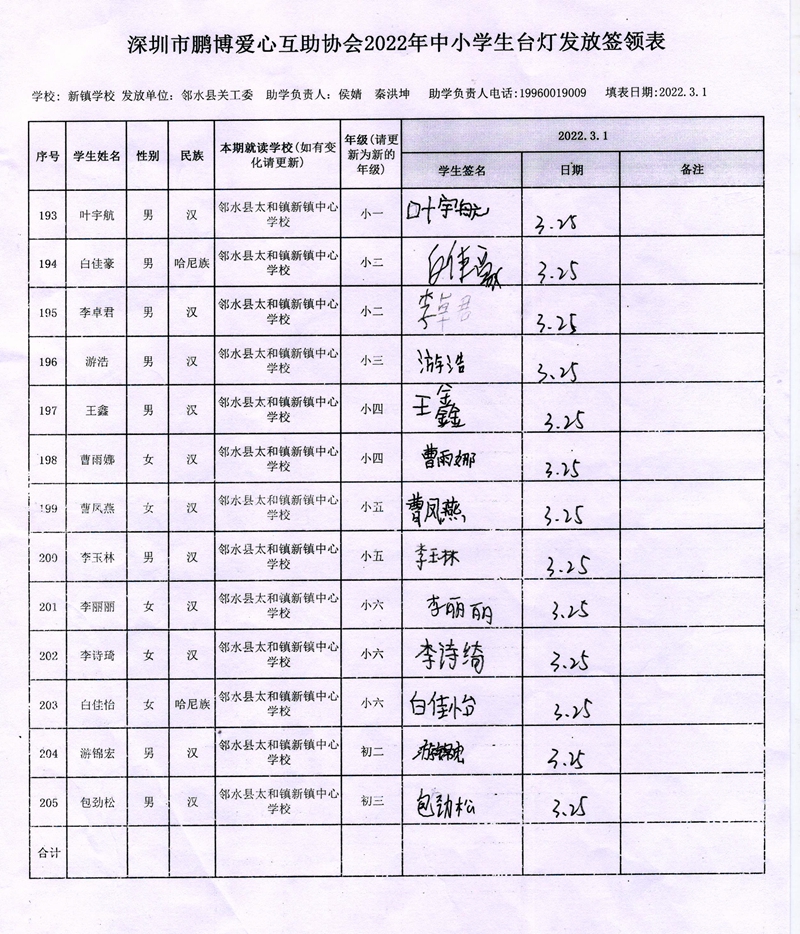 深圳市鹏博爱心互助协会2022年中小学生台灯发放签领表
学校: 新镇学校 发放单位: 邻水县关工委 助学负责人: 侯婧 秦洪坤 助学负责人电话:19960019009 填表日期:2022.3.1
序号 学生姓名 性别 民族 本期就读学校(如有变化请更新) 年级(请更新为新的年级) 2022.3.1
学生签名 日期 备注
193 叶宇航 男 汉 邻水县太和镇新镇中心学校 小一 叶宇航 3.25
194 白佳豪 男 哈尼族 邻水县太和镇新镇中心学校 小二 白佳豪 3.25
195 李卓君 男 汉 邻水县太和镇新镇中心学校 小二 李卓君 3.25
196 游浩 男 汉 邻水县太和镇新镇中心学校 小三 游浩 3.25
197 王鑫 男 汉 邻水县太和镇新镇中心学校 小四 王鑫 3.25
198 曹雨娜 女 汉 邻水县太和镇新镇中心学校 小四 曹雨娜 3.25
199 曹凤燕 女 汉 邻水县太和镇新镇中心学校 小五 曹凤燕 3.25
200 李玉林 男 汉 邻水县太和镇新镇中心学校 小五 李玉林 3.25
201 李丽丽 女 汉 邻水县太和镇新镇中心学校 小六 李丽丽 3.25
202 李诗琦 女 汉 邻水县太和镇新镇中心学校 小六 李诗绮 3.25
203 白佳怡 女 哈尼族 邻水县太和镇新镇中心学校 小六 白佳怡 3.25
204 游锦宏 男 汉 邻水县太和镇新镇中心学校 初二 3.25
205 包劲松 男 汉 邻水县太和镇新镇中心学校 初三 包劲松 3.25
合计